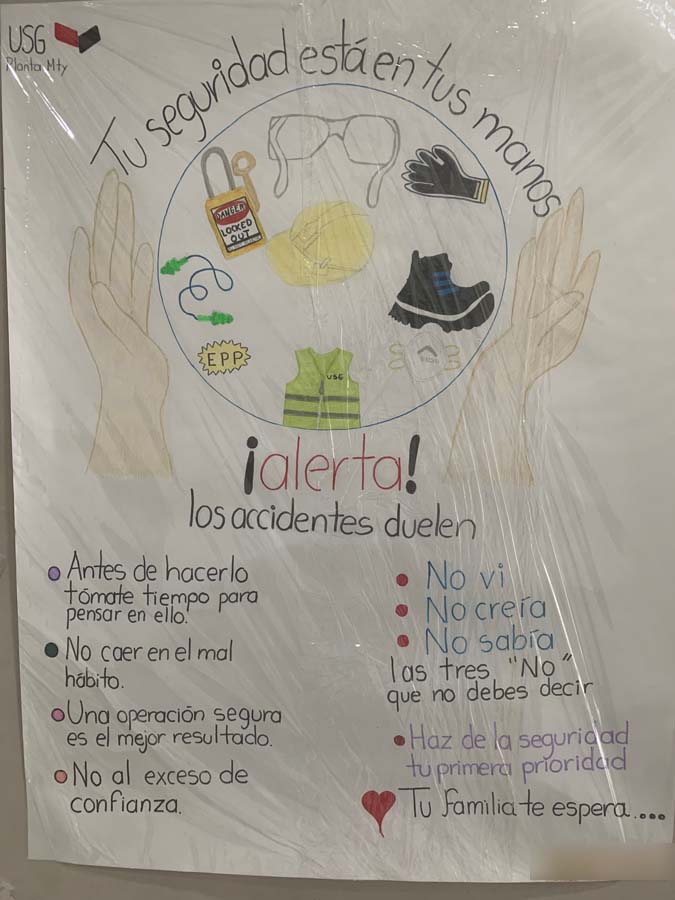 USG
Planta Mty
Tu seguridad está en tus manos
DANGER
LOCKED
OUT
EPP
USG
¡alerta!
los accidentes duelen
Antes de hacerlo
tómate tiempo para
pensar en ello.
No caer en el mal
hábito.
Una operación segura
es el mejor resultado.
No al exceso de
confianza.
No vi
No creía
No sabía
las tres "No"
que no debes decir
Haz de la seguridad
tu primera prioridad
Tu familia te espera....